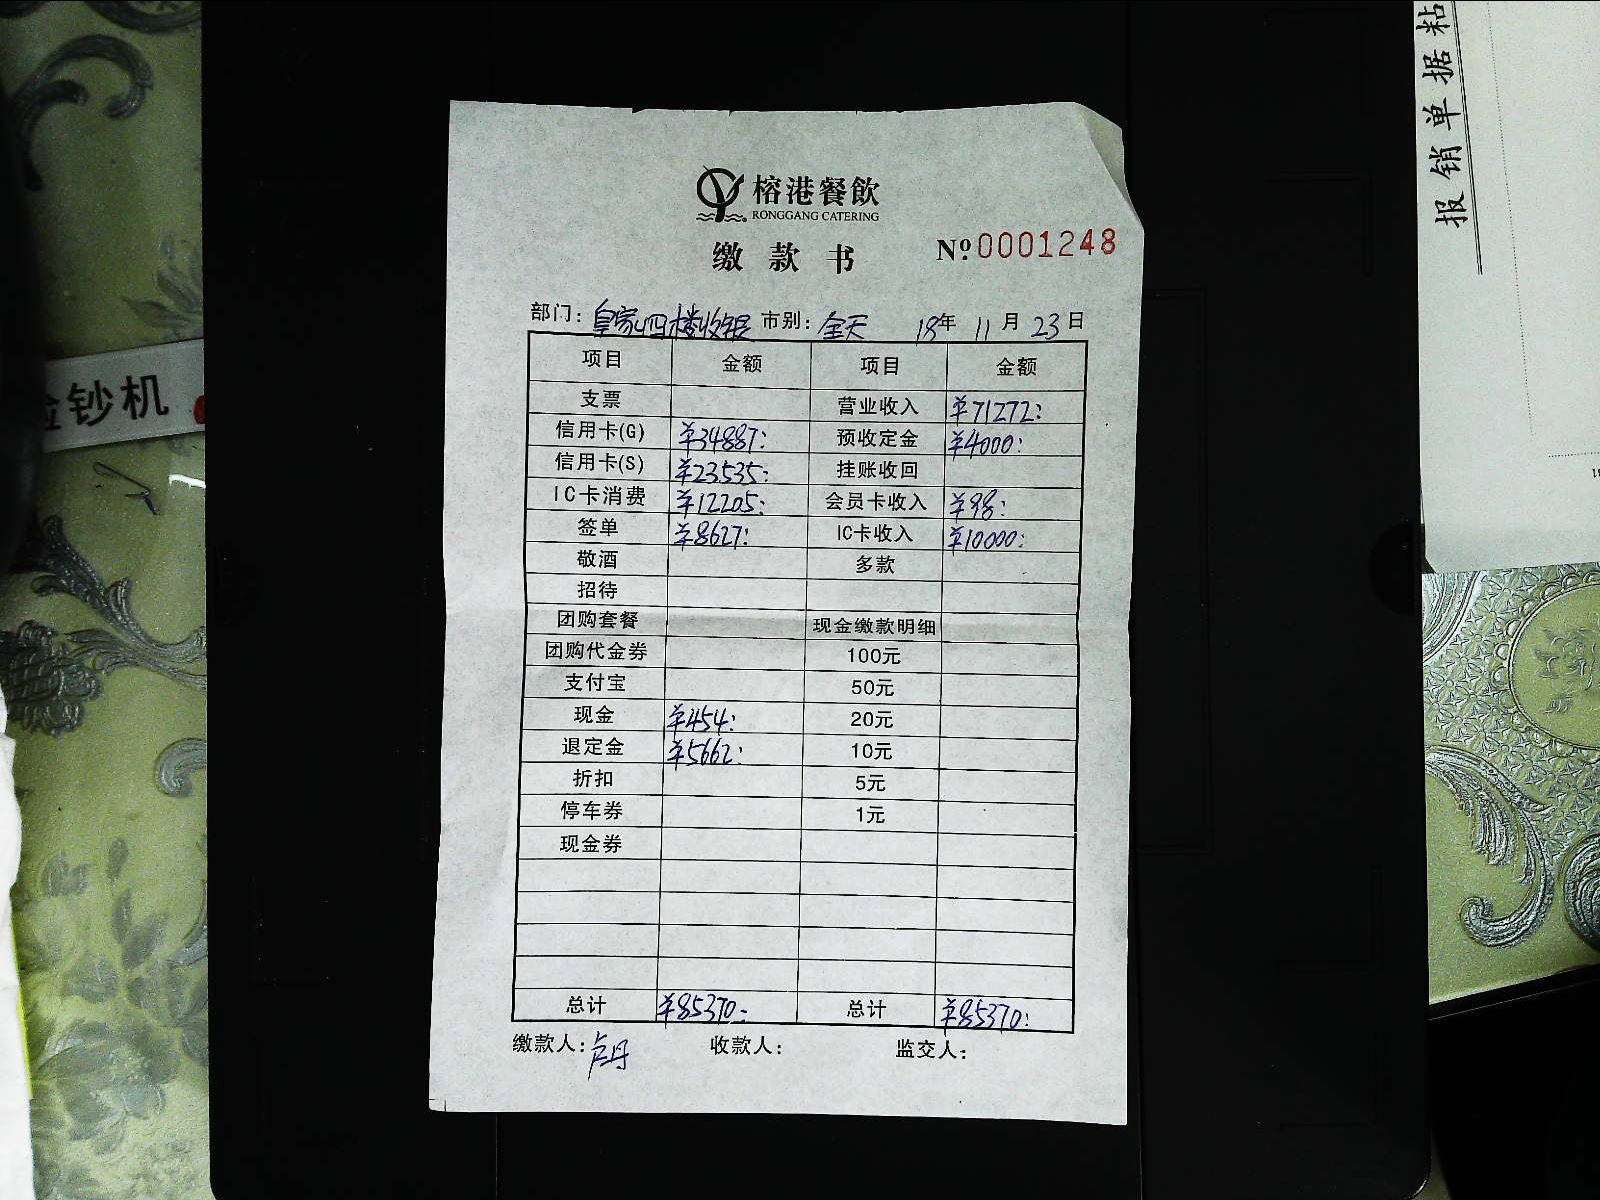 榕港餐飲
RONGGANG CATERING
缴款书 Nº.0001248
部门：皇家四楼收银 市别：全天 18年11月23日
项目 金额 项目 金额
支票 营业收入 ¥71272:
信用卡(G) ¥34887: 预收定金 ¥4000:
信用卡(S) ¥23535: 挂账收回
IC卡消费 ¥12205: 会员卡收入 ¥98:
签单 ¥8627: IC卡收入 ¥10000:
敬酒 多款
招待
团购套餐 现金缴款明细
团购代金券 100元
支付宝 50元
现金 ¥454: 20元
退定金 ¥5662: 10元
折扣 5元
停车券 1元
现金券
总计 ¥85370- 总计 ¥85370:
缴款人：卢丹 收款人： 监交人：
报销单据粘
钞机